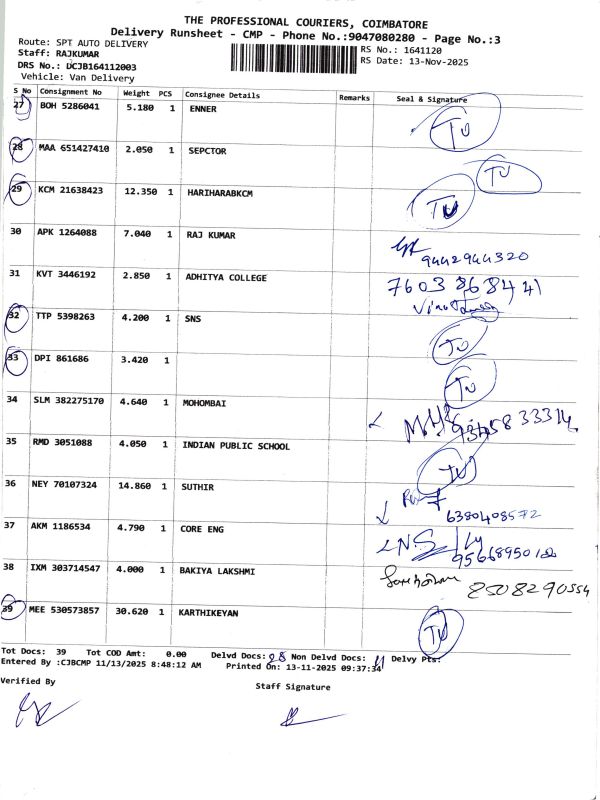 THE PROFESSIONAL COURIERS, COIMBATORE
Delivery Runsheet - CMP - Phone No.:9047080280 - Page No.:3
Route: SPT AUTO DELIVERY
RS No.: 1641120
Staff: RAJKUMAR
RS Date: 13-Nov-2025
DRS No.: DCJB164112003
Vehicle: Van Delivery
S No Consignment No Weight PCS Consignee Details Remarks Seal & Signature
27 BOH 5286041 5.180 1 ENNER TU
28 MAA 651427410 2.050 1 SEPCTOR TU
29 KCM 21638423 12.350 1 HARIHARABKCM TU
30 APK 1264088 7.040 1 RAJ KUMAR 9442944320
31 KVT 3446192 2.850 1 ADHITYA COLLEGE 7603868441
32 TTP 5398263 4.200 1 SNS TU
33 DPI 861686 3.420 1 TU
34 SLM 382275170 4.640 1 MOHOMBAI
35 RMD 3051088 4.050 1 INDIAN PUBLIC SCHOOL TU
36 NEY 70107324 14.860 1 SUTHIR 6380408572
37 AKM 1186534 4.790 1 CORE ENG
38 IXM 303714547 4.000 1 BAKIYA LAKSHMI 2508290554
39 MEE 530573857 30.620 1 KARTHIKEYAN TU
Tot Docs: 39 Tot COD Amt: 0.00 Delvd Docs: 28 Non Delvd Docs: 11 Delvy Pts:
Entered By :CJBCMP 11/13/2025 8:48:12 AM Printed On: 13-11-2025 09:37:34
Verified By
Staff Signature